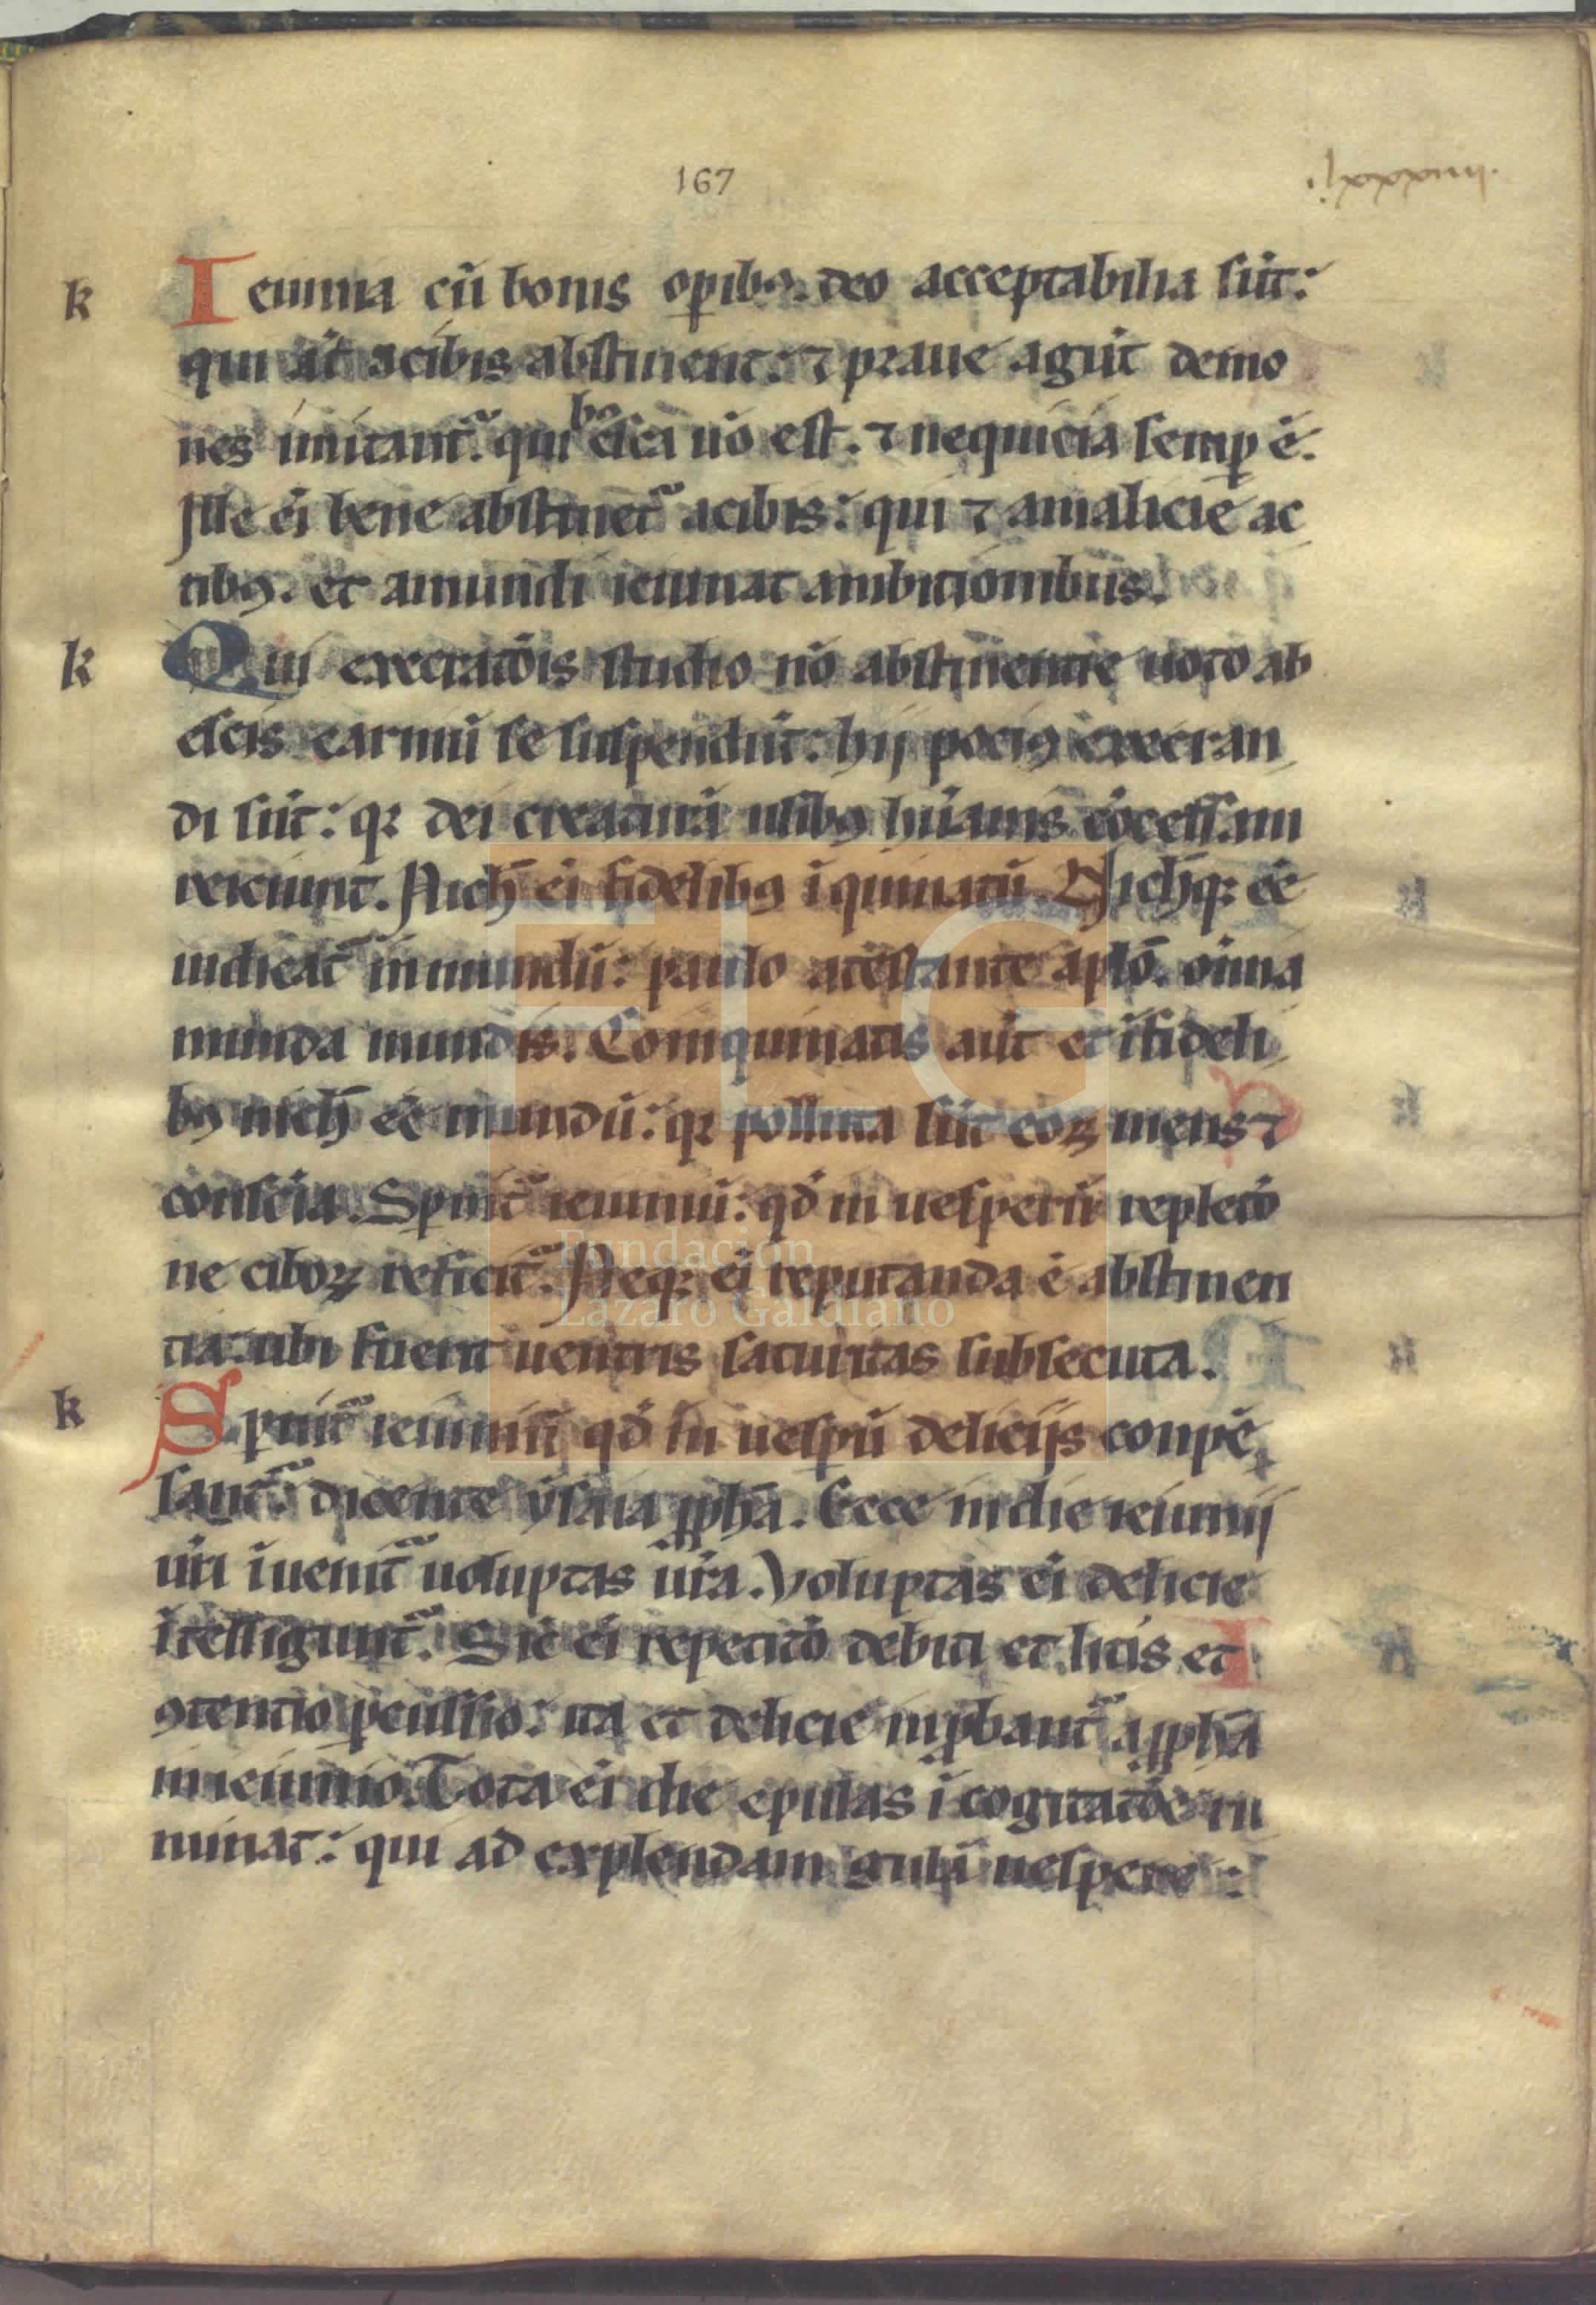 167
k Ieiunia cū bonis op̄ibꝯ. deo acceptabilia sūt:
qui aūt acibis abstinent: ⁊ praue agūt demo
nes imitant᷑. quibꝯ esca nō est. ⁊ nequicia semꝑ ē.
Ille ēi bene abstinet᷑ acibis: qui ⁊ amalicie ac
tibꝯ. et amundi ieiunat ambitionibus.
k Qui execratōis studio nō abstinentie uoto ab
escis carniū se suspendūt: hij pociꝯ execran
di sūt: qꝛ dei creaturā usibꝯ hūanis cōcessam
reiciunt. Nich̄ ēi fidelibꝯ īquinatū. Nich̄qꝛ ēē
iudicat᷑ inmundū: paulo atestante aplō. oīnia
munda mundis. Coinquinatis aūt et īfideli
bꝯ nich̄ ēē mundū: qꝛ polluta sūt eoꝝ mens ⁊
consciā. Spnit᷑ ieiuniū: qd̄ in uesperū repletō
ne ciboꝝ reficit᷑. Neqꝛ ēi reputanda ē abstinen
tia: ubi fuerit uentris saturitas subsecuta.
k Spnit᷑ ieiuniū qd̄ in uesꝑū delicijs conpē
sant᷑. dicente ysaia ꝓph̄a. Ecce in die ieiunij
ūri īuenit᷑ uoluptas ūra. Voluptas ēi delicie
ītelligunt᷑. Sic ēi repetitō debiti et litis et
ꝯtentio ꝑcussio: ita et delicie inꝓbant᷑ a ꝓph̄a
in ieiunio. Tota ēi die epulas ī cogitatōe ru
minat: qui ad explendam gulā uespere:
Fundación
Lázaro Galdiano
FLG